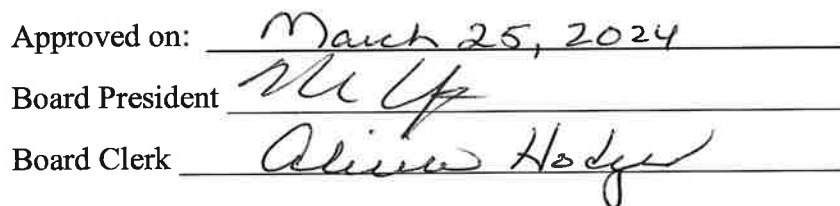 Approved on: March 25, 2024
Board President
Board Clerk Hodges